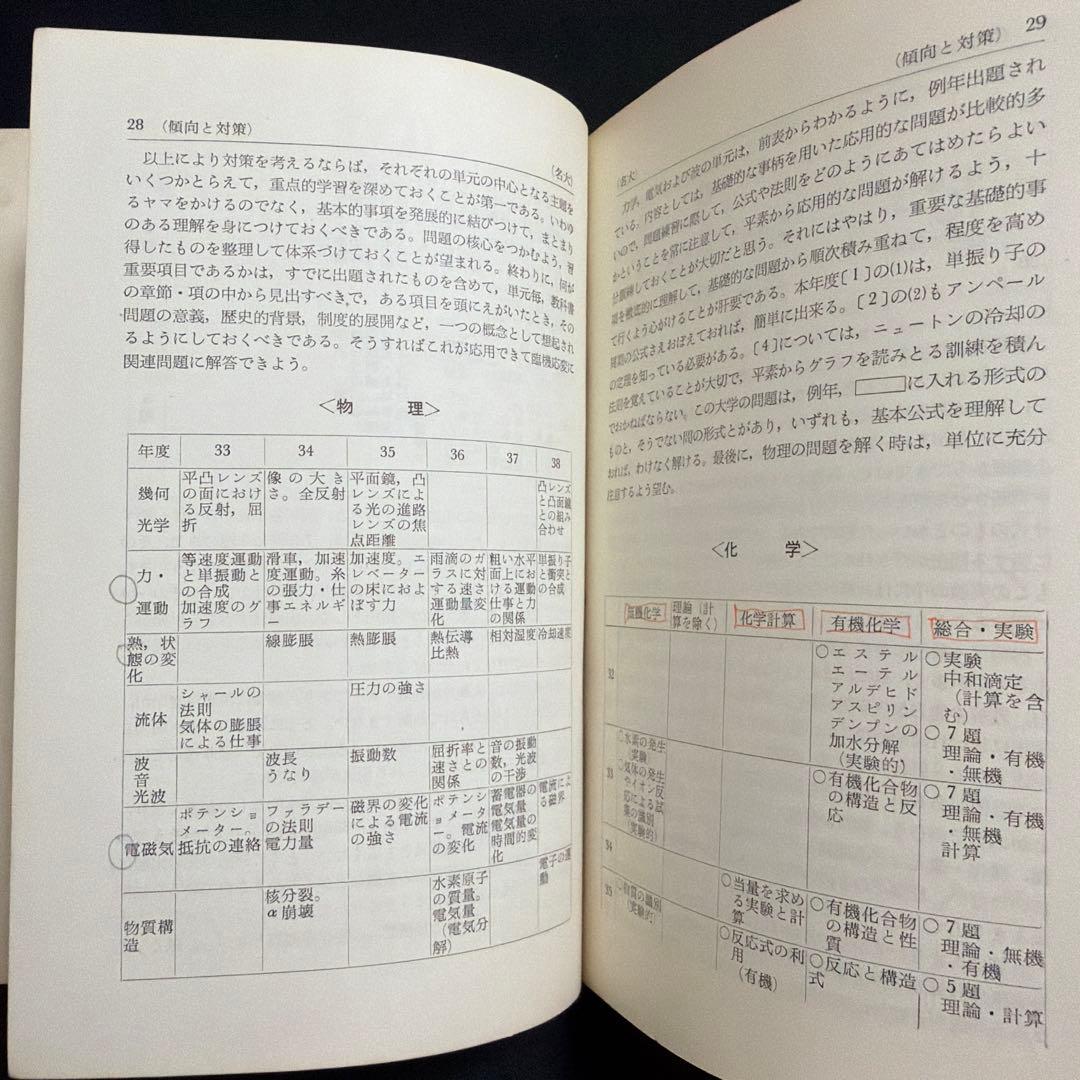 28 (傾向と対策)
(名大)
以上により対策を考えるならば，それぞれの単元の中心となる主題を
いくつかとらえて，重点的学習を深めておくことが第一である。いわゆ
るヤマをかけるのでなく，基本的事項を発展的に結びつけて，まとまり
のある理解を身につけておくべきである。問題の核心をつかむよう，習
得したものを整理して体系づけておくことが望まれる。終わりに，何が
重要項目であるかは，すでに出題されたものを含めて，単元毎，教科書
の章節・項の中から見出すべきで，ある項目を頭にえがいたとき，その
問題の意義，歴史的背景，制度的展開など，一つの概念として想起され
るようにしておくべきである。そうすればこれが応用できて臨機応変に
関連問題に解答できよう。
＜物　　理＞
年度 33 34 35 36 37 38
幾何
光学
平凸レンズ
の面におけ
る反射，屈
折
像の大き
さ。全反射
平面鏡，凸
レンズによ
る光の進路
レンズの焦
点距離
凸レンズ
と凸面鏡
との組み
合わせ
力・
運動
等速度運動
と単振動と
の合成
加速度のグ
ラフ
滑車，加速
度運動。糸
の張力・仕
事エネルギ
ー
加速度。エ
レベーター
の床におよ
ぼす力
雨滴のガ
ラスに対
する速さ
運動量変
化
粗い水平
面上にお
ける運動
仕事と力
の関係
単振り子
と衝突と
の合成
熱，状
態の変
化
線膨脹
熱膨脹
熱伝導
比熱
相対湿度
冷却速度
流体
シャールの
法則
気体の膨脹
による仕事
圧力の強さ
波
音
光波
波長
うなり
振動数
屈折率と
速さとの
関係
音の振動
数，光波
の干渉
電磁気
ポテンショ
メーター。
抵抗の連絡
ファラデー
の法則
電力量
磁界の変化
による電流
の強さ
ポテンシ
ョメータ
ー。電流
の変化
蓄電器の
電気量
電気量の
時間的変
化
電流によ
る磁界
物質構
造
核分裂。
α崩壊
水素原子
の質量。
電気量
（電気分
解）
電子の運
動
(傾向と対策) 29
(名大)
力学，電気および波の単元は，前表からわかるように，例年出題され
ている。内容としては，基礎的な事柄を用いた応用的な問題が比較的多
いので，問題練習に際して，公式や法則をどのようにあてはめたらよい
かということを常に注意して，平素から応用的な問題が解けるよう，十
分訓練しておくことが大切だと思う。それにはやはり，重要な基礎的事
項を徹底的に理解して，基礎的な問題から順次積み重ねて，程度を高め
て行くよう心がけることが肝要である。本年度〔1〕の(1)は，単振り子の
周期の公式さえおぼえておれば，簡単に出来る。〔2〕の(2)もアンペール
の定理を知っている必要がある。〔4〕については，ニュートンの冷却の
法則を覚えていることが大切で，平素からグラフを読みとる訓練を積ん
でおかねばならない。この大学の問題は，例年，に入れる形式の
ものと，そうでない問の形式とがあり，いずれも，基本公式を理解して
おれば，わけなく解ける。最後に，物理の問題を解く時は，単位に充分
注意するよう望む。
＜化　　学＞
無機化学
理論（計
算を除く）
化学計算
有機化学
総合・実験
32
○エステル
エーテル
アルデヒド
アスピリン
デンプンの
加水分解
(実験的)
○実験
中和滴定
（計算を含
む）
○7題
理論・有機
・無機
33
○水素の発生
(実験
○気体の発生
やイオン反
応による試
薬の識別
(実験的)
○有機化合物
の構造と反
応
○7題
理論・有機
・無機
計算
34
○当量を求め
る実験と計
算
○有機化合物
の構造と性
質
○7題
理論・無機
・有機
35
○物質の識別
(実験的)
○反応式の利
用
（有機）
○反応と構造
式
○5題
理論・計算